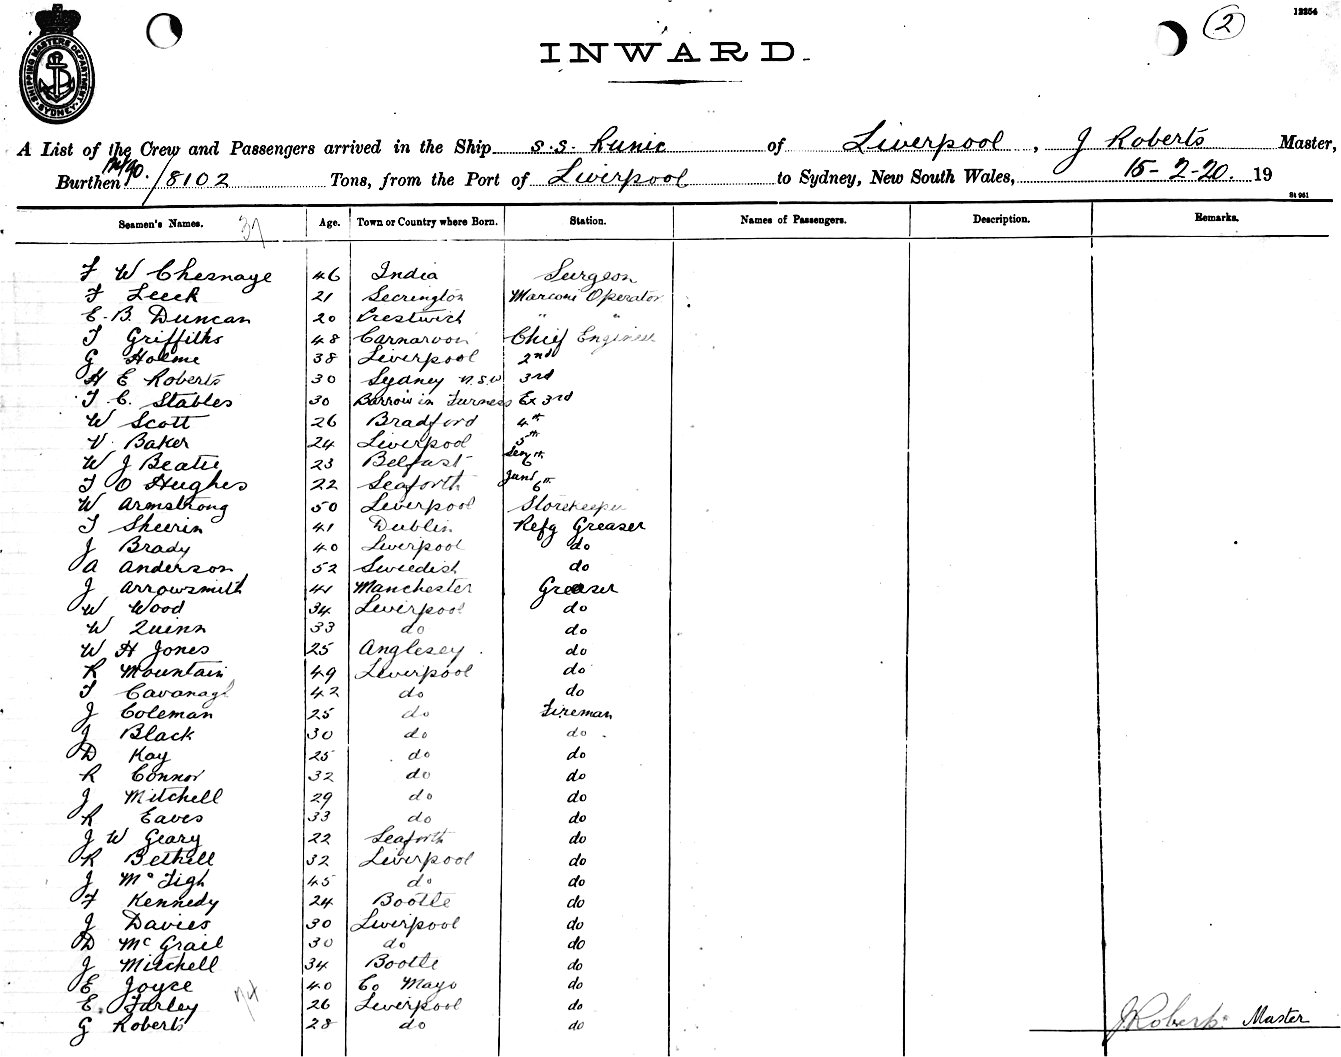 12254
2
SHIPPING MASTERS DEPARTMENT SYDNEY
INWARD.
A List of the Crew and Passengers arrived in the Ship s.s. Runic of Liverpool, J Roberts Master,
Burthen /8102 Tons, from the Port of Liverpool to Sydney, New South Wales, 15-2-20. 19
St 961
Seamen's Names. 37 Age. Town or Country where Born. Station. Names of Passengers. Description. Remarks.
F W Chesnaye 46 India Surgeon
F Leeck 21 Secrington Marconi Operator
E. B. Duncan 20 Prestwich " "
T Griffiths 48 Carnarvon Chief Engineer
G Holme 38 Liverpool 2nd
H E Roberts 30 Sydney N.S.W 3rd
T C. Stables 30 Barrow in Furness Ex 3rd
W Scott 26 Bradford 4th
V. Baker 24 Liverpool 5th
W J Beatie 23 Belfast Sen 6th
T O Hughes 22 Seaforth Junr 6th
W Armstrong 50 Liverpool Storekeeper
T Sheerin 41 Dublin Refg Greaser
J Brady 40 Liverpool do
A Anderson 52 Swedish do
J Arrowsmith 41 Manchester Greaser
W Wood 34 Liverpool do
W Quinn 33 do do
W H Jones 25 Anglesey. do
R Mountain 49 Liverpool do
T Cavanagh 42 do do
J Coleman 25 do Fireman
J Black 30 do do.
D Kay 25 do do
R Connor 32 do do
J Mitchell 29 do do
R Eaves 33 do do
J W Geary 22 Seaforth do
R Bethell 32 Liverpool do
J McTigh 45 do do
F Kennedy 24 Bootle do
J Davies 30 Liverpool do
D McGrail 30 do do
J Mitchell 34 Bootle do
E Joyce 40 Co Mayo do
E. Farley 26 Liverpool do
G Roberts 28 do do
J Roberts Master